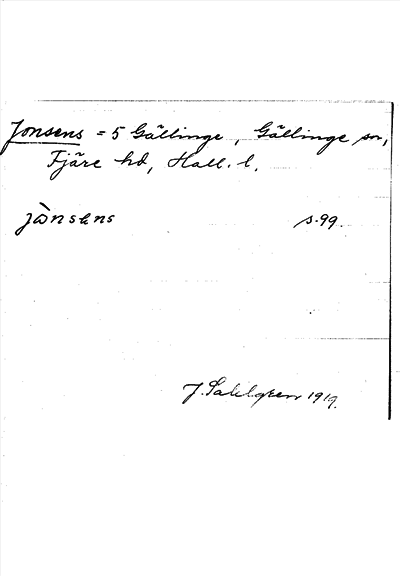 Jonsens = 5 Gällinge, Gällinge sn,
Fjäre hd, Hall. l.
jònsens s. 99.
J. Sahlgren 1919.